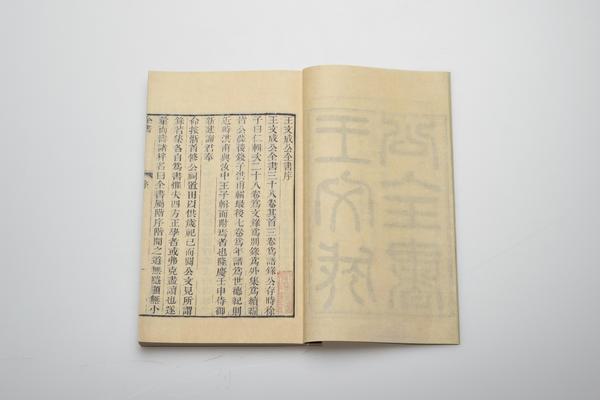 王文成公全書序
王文成公全書三十八卷其首三卷爲語錄公存時徐
子曰仁輯次二十八卷爲文錄爲別錄爲外集爲續編
皆公薨後錢子洪甫輯最後七卷爲年譜爲世德紀則
近時洪甫與汝中王子輯而附焉者也隆慶壬申侍御
新建謝君奉
命按浙首修公祠置田以供歲祀已而閱公文見所謂
錄若集各自爲書懼夫四方正學者或弗克盡讀也遂
彙而壽諸梓名曰全書屬階序階聞之道無隱顯無小